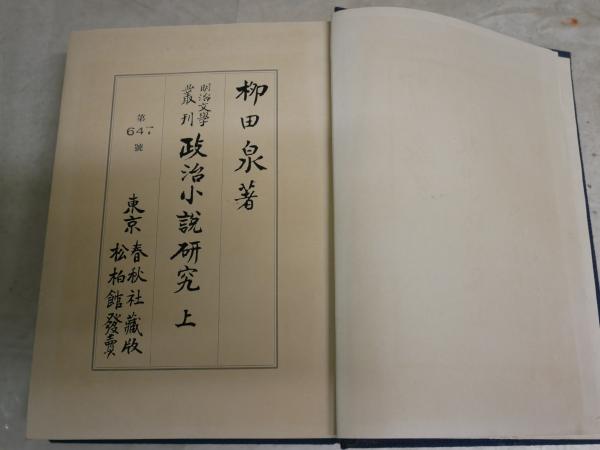 柳田泉著
明治文學
叢刊
政治小說研究 上
第
647
號
東京
春秋社藏版
松柏館發賣